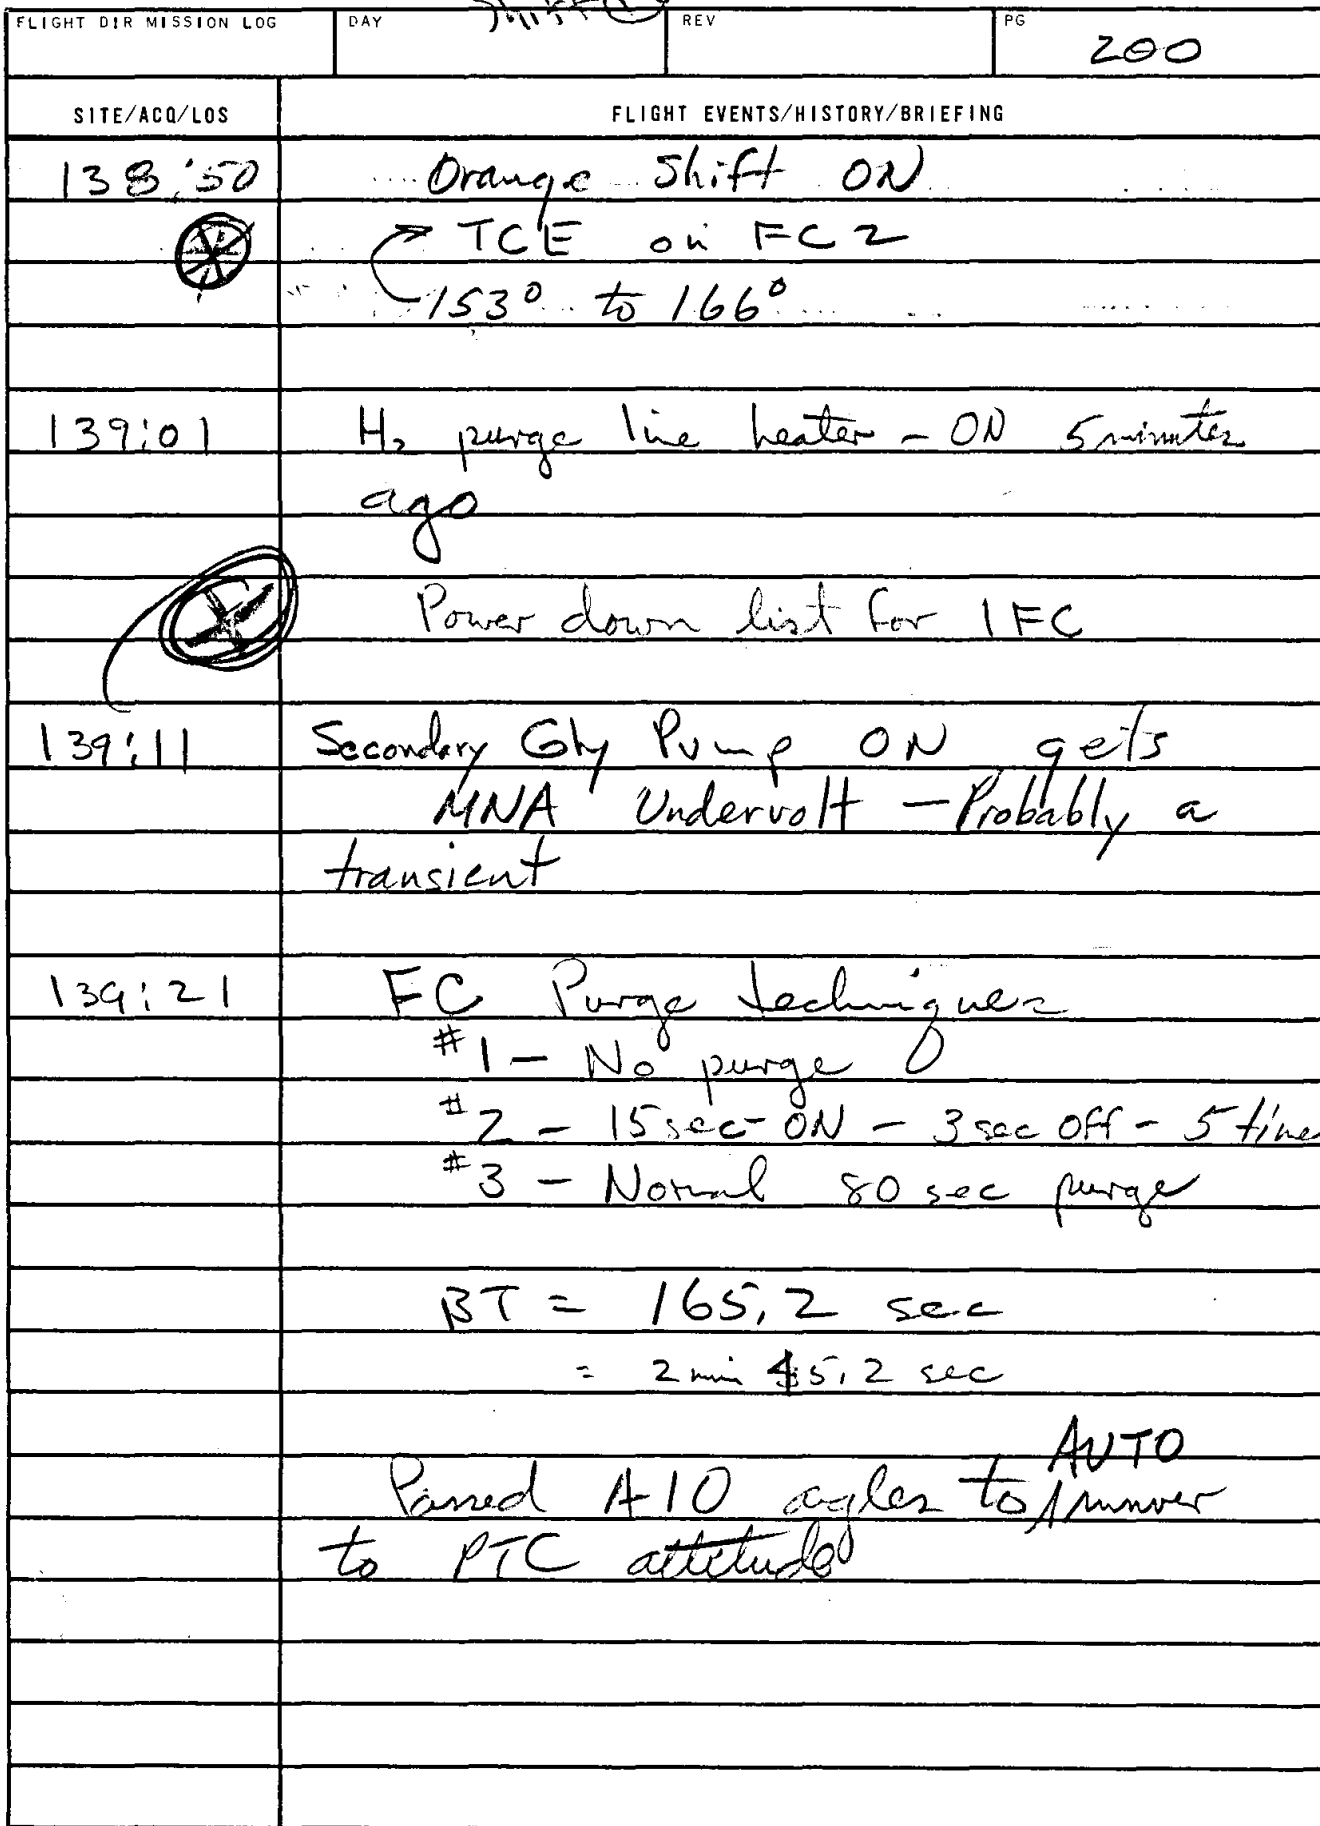 FLIGHT DIR MISSION LOG DAY Shift REV PG 200
SITE/ACQ/LOS FLIGHT EVENTS/HISTORY/BRIEFING
138:50 Orange Shift ON
TCE on FC2
153° to 166°
139:01 H2 purge line heater - ON 5 minutes
ago
Power down list for 1 FC
139:11 Secondary Gly Pump ON gets
MNA Undervolt - Probably a
transient
139:21 FC Purge techniques
#1 - No purge
#2 - 15 sec - ON - 3 sec Off - 5 time
#3 - Normal 80 sec purge
BT = 165.2 sec
= 2 min 45.2 sec
AUTO
Passed A10 angles to mnver
to PTC attitude